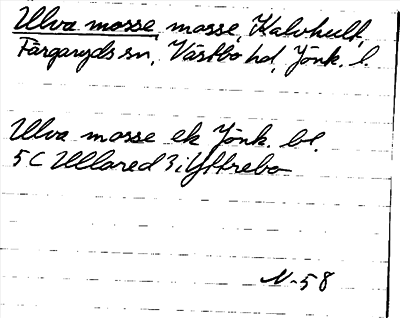 Ulva mosse, mosse, Kalvhult,
Färgaryds sn, Västbo hd, Jönk. l.
Ulva mosse ek Jönk. bl.
5 C Ullared 3 i Yttrebo
N-58